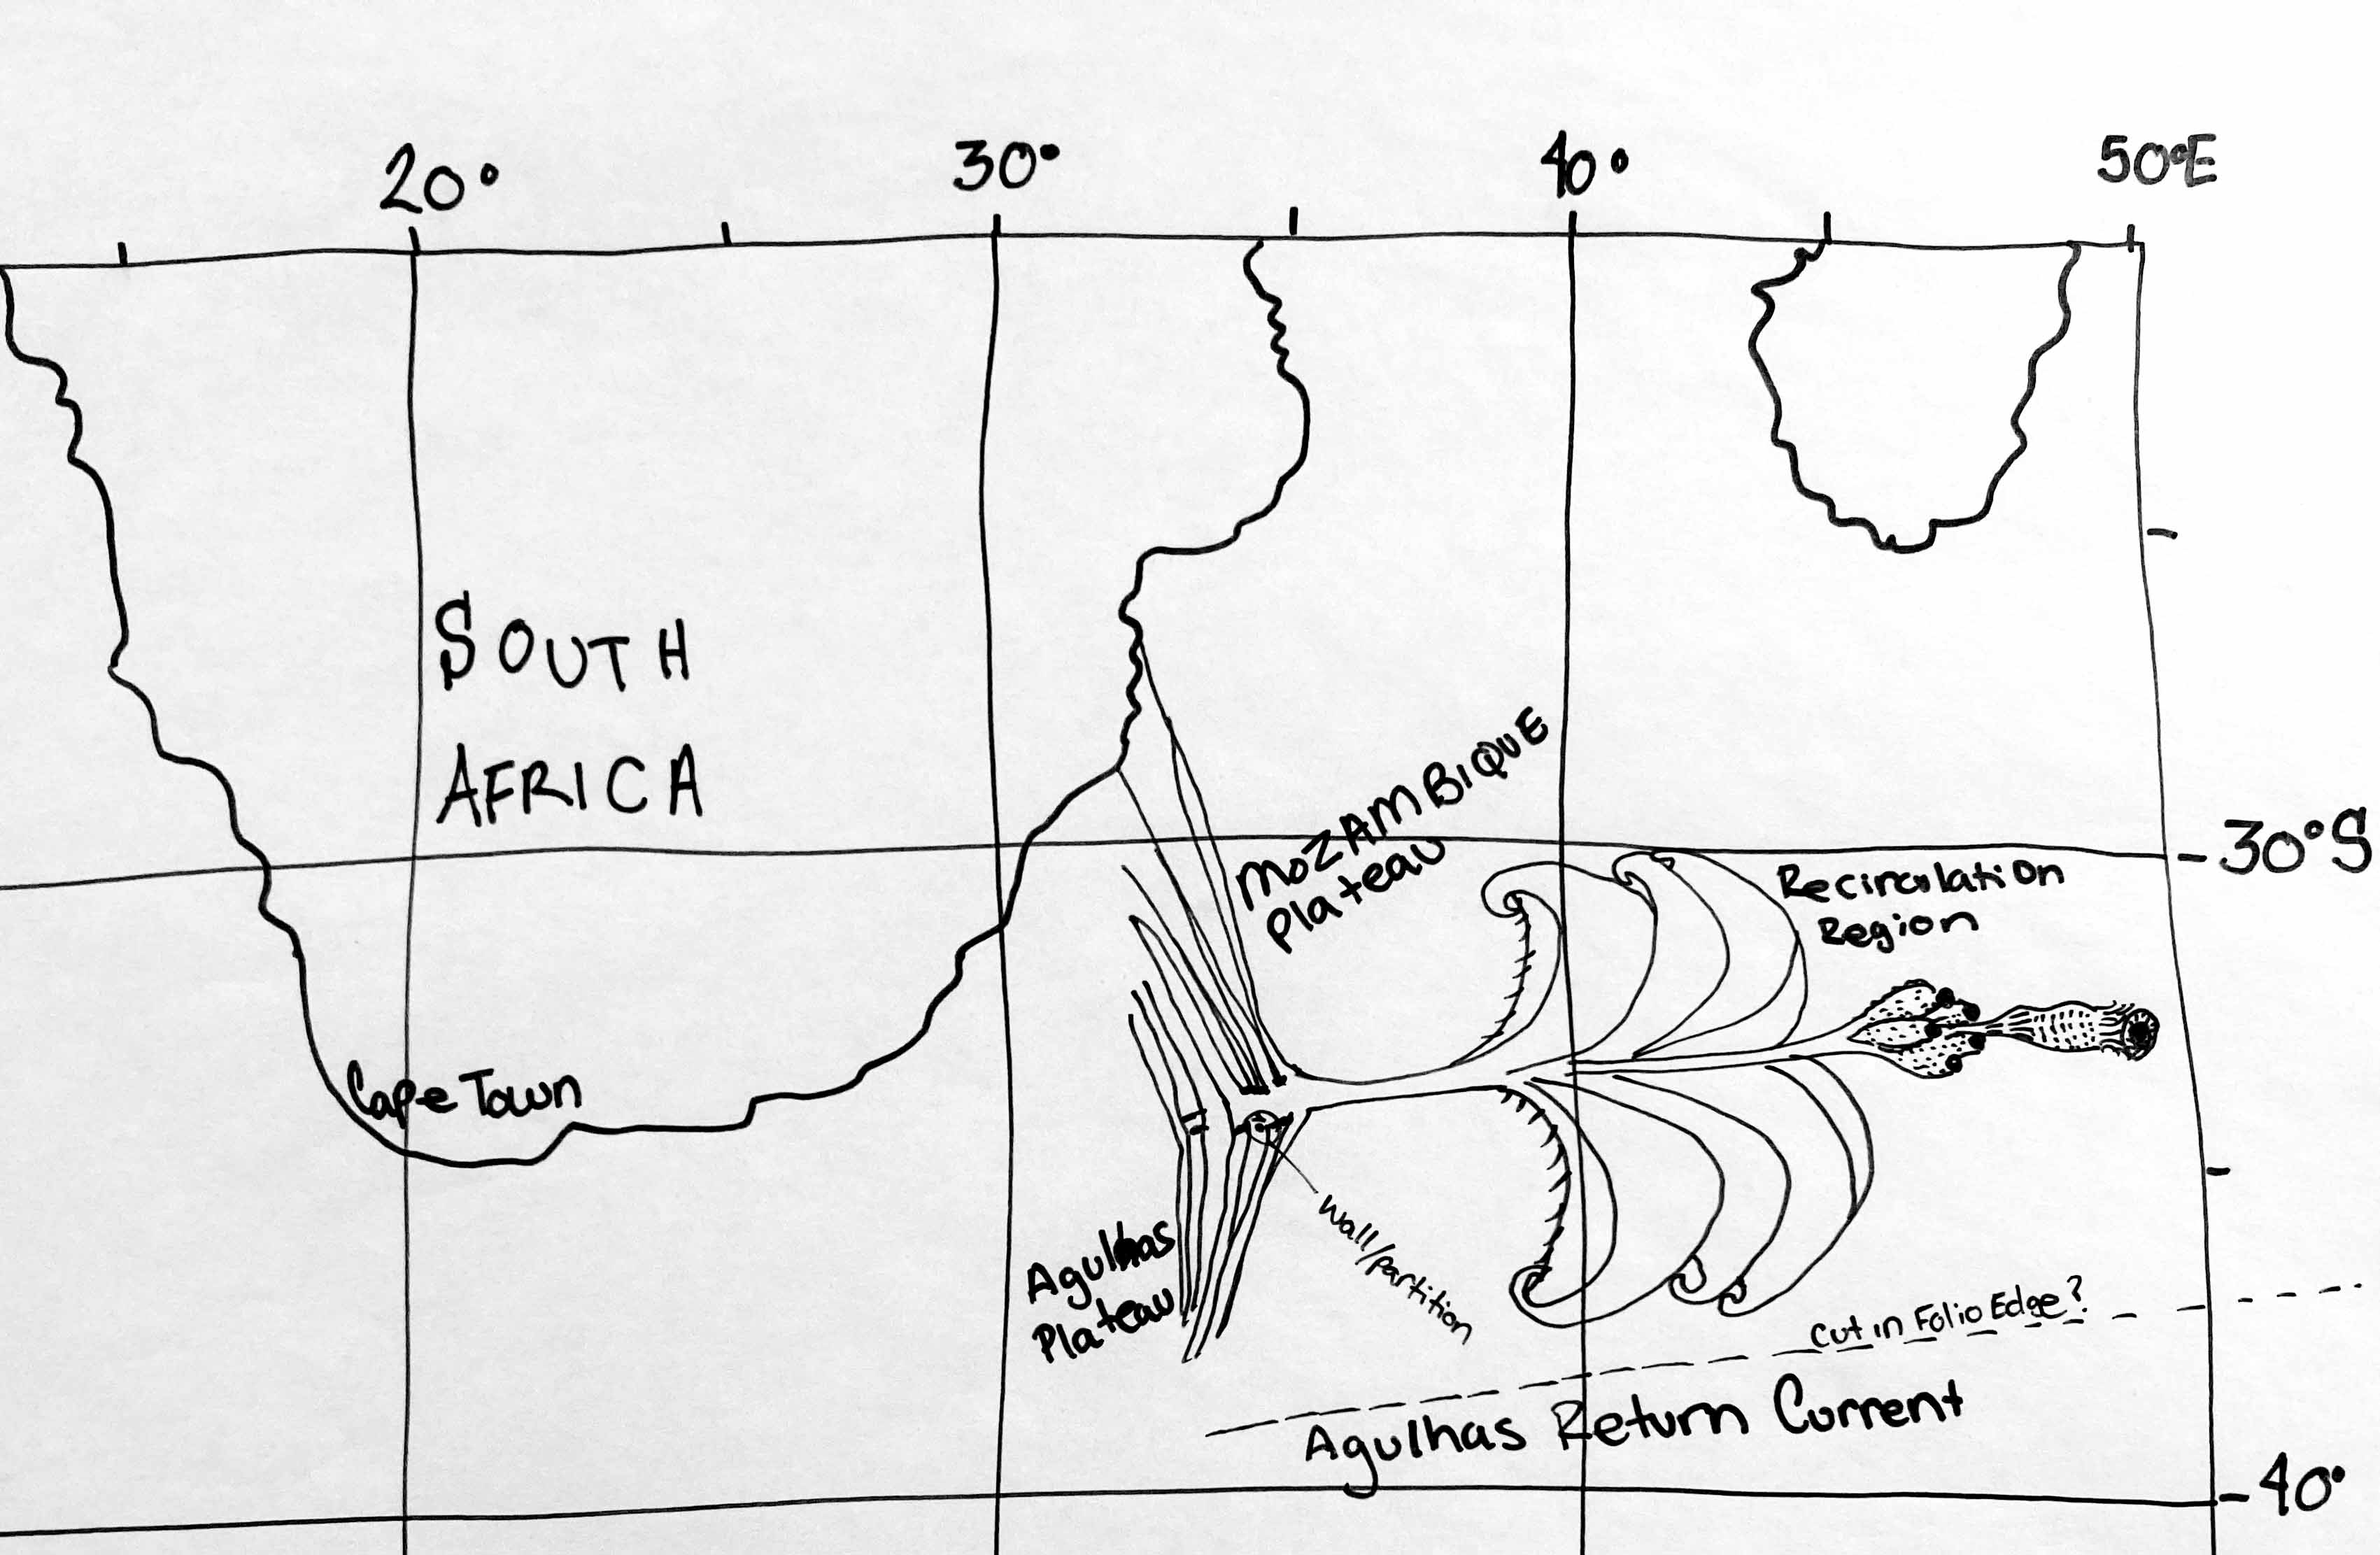 20°
30°
40°
50°E
SOUTH
AFRICA
MOZAMBIQUE
Plateau
-30°S
Recirculation
Region
Cape Town
Agulhas
Plateau
wall/partition
Cut in Folio Edge?
Agulhas Return Current
-40°